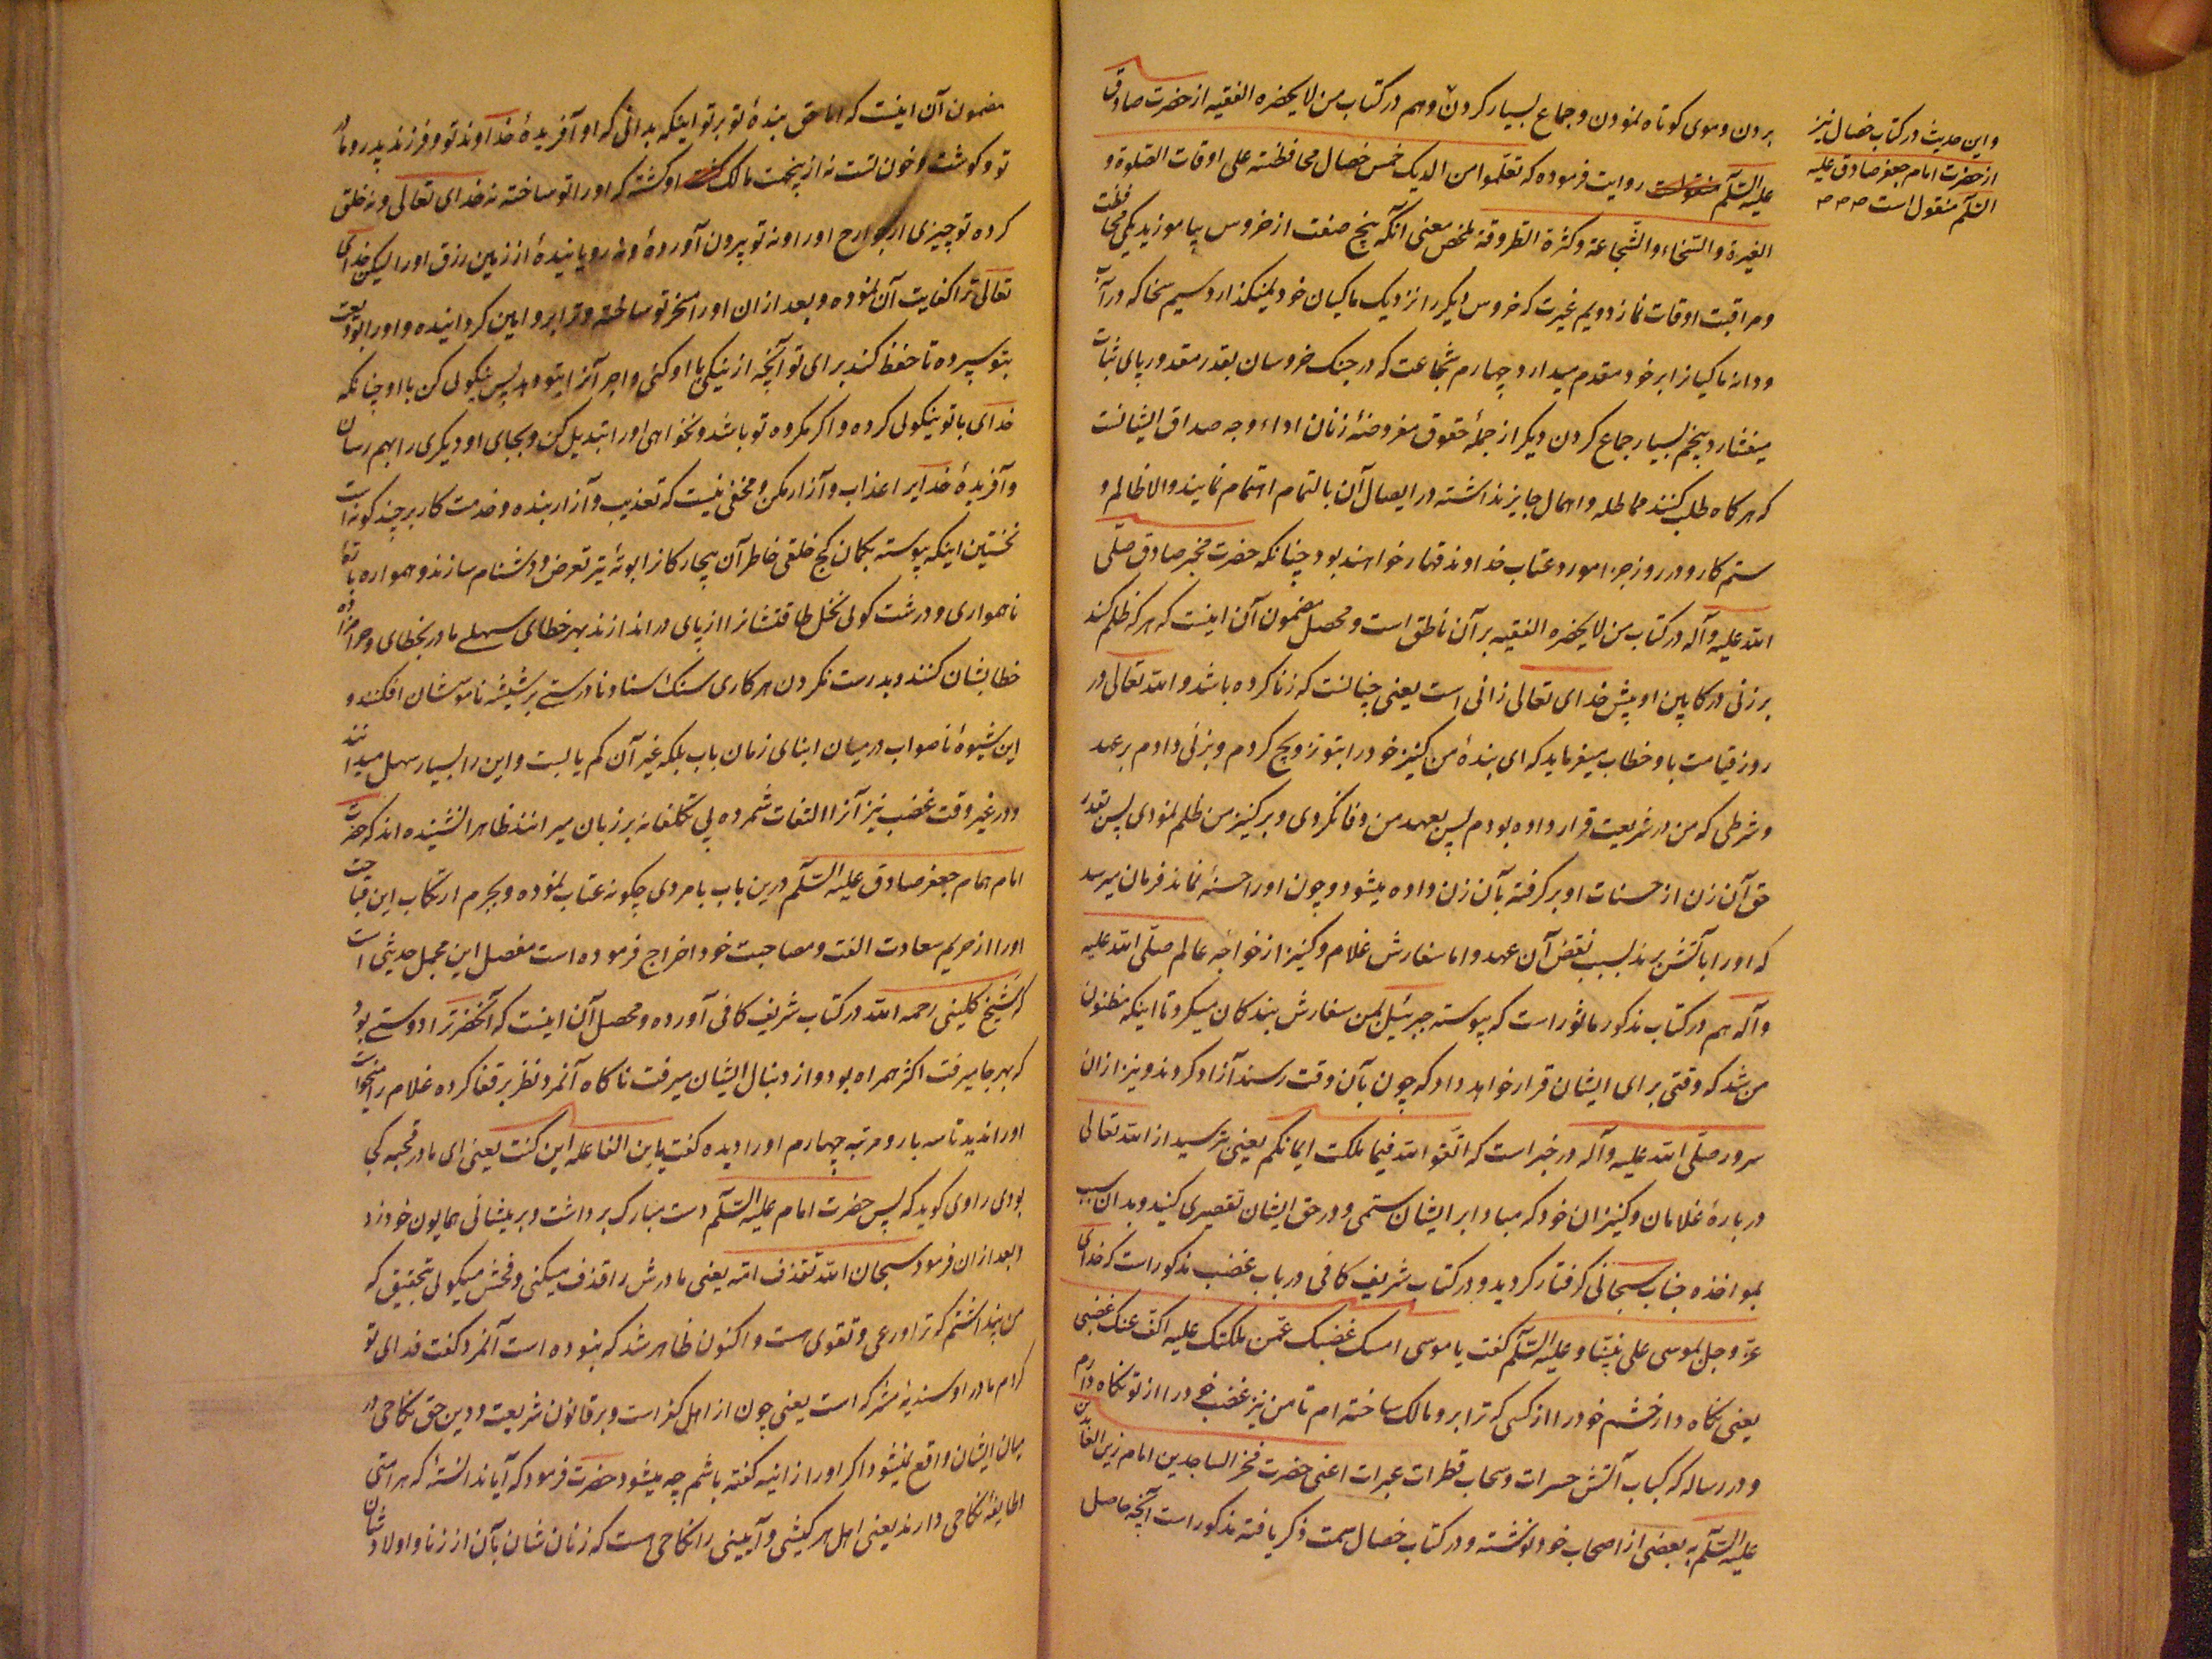 بردن و موی کوتاه نمودن و جماع بسیار کردن و هم در کتاب من لا یحضره الفقیه از حضرت صادق
علیه السّلم روایت فرموده که تعلّموا من الدیک خمس خصال محافظته علی اوقات الصّلوة و
الغیرة و السّخاء و الشّجاعة و کثرة الطروقة ملخص معنی آنکه پنج صفت از خروس بیاموزید یکی محافظت
و مراقبت اوقات نماز دویم غیرت که خروس دیگر را نزدیک ماکیان خود نمیگذارد سیم سخا که در آب
و دانه ماکیانرا بر خود مقدم میدارد چهارم شجاعت که در جنک خروسان بقدر مقدور پای ثبات
میفشارد پنجم بسیار جماع کردن دیگر از جملهٔ حقوق مفروضهٔ زنان اداء وجه صداق ایشانست
که هر کاه طلب کنند مماطله و اهمال جایز نداشته در ایصال آن بالتمام اهتمام نمایند والا ظالم و
ستم کار و در روز جزا مورد عتاب خداوند قهار خواهند بود چنانکه حضرت مخبر صادق صلّی
الله علیه و آله در کتاب من لا یحضره الفقیه بر آن ناطق است و محصل مضمون آن اینست که هر که ظلم کند
بر زنی در کابین او پیش خدای تعالی زانی است یعنی چنانست که زنا کرده باشد و الله تعالی در
روز قیامت باو خطاب میفرماید که ای بندهٔ من کنیز خود را بتو تزویج کردم و بزنی دادم بر عهد
و شرطی که من در شریعت قرار داده بودم پس بعهد من وفا نکردی و بر کنیز من ظلم نمودی پس بقدر
حق آن زن از حسنات او بر گرفته بآن زن داده میشود و چون او را حسنهٔ نماند فرمان میرسد
که او را بآتش برند بسبب نقض آن عهد و اما سفارش غلام و کنیز از خواجه عالم صلّی الله علیه
و آله هم در کتاب مذکور ماثور است که پیوسته جبرئیل بمن سفارش بندکان میکرد تا اینکه مظنون
من شد که وقتی برای ایشان قرار خواهد داد که چون بآن وقت رسند آزاد کردند و نیز از ان
سرور صلّی الله علیه و آله در خبر است که اتّقوا الله فیما ملکت ایمانکم یعنی بترسید از الله تعالی
در بارهٔ غلامان و کنیزان خود که مبادا بر ایشان ستمی و در حق ایشان تقصیری کنید و بدان سبب
بمواخذه جناب سبحانی گرفتار کردید و در کتاب شریف کافی در باب غضب مذکور است که خدای
عزّ و جل بموسی علی نبیّنا و علیه السّلم گفت یا موسی امسک غضبک عمّن ملکتک علیه اکفّ عنک غضبی
یعنی نکاه دار خشم خود را از کسی که ترا بر و مالک ساخته ام تا من نیز غضب خود را از تو نکاه دارم
و در رساله که کباب آتش حسرات و سحاب قطرات عبرات اعنی حضرت فخر الساجدین امام زین العابدین
علیه السّلم به بعضی از اصحاب خود نوشته و در کتاب خصال سمت ذکر یافته مذکور است آنچه حاصل
و این حدیث در کتاب خصال نیز
از حضرت امام جعفر صادق علیه
السّلم منقول است
مضمون آن اینست که اما حق بندهٔ تو بر تو اینکه بدانی که او آفریدهٔ خداوند تو و فرزند پدر و مادر
تو و کوشت و خون تست نه از پنجهت مالک او کشته که او را تو ساخته نه خدای تعالی و نه خلق
کرده تو چیزی از جوارح او را و نه تو بیرون آوردهٔ و نه رویانیدهٔ از زمین رزق او را لیکن خدای
تعالی ترا کفایت آن نموده و بعد از ان او را مسخر تو ساخته و ترا بر و امین کردانیده و او را بودیعت
بتو سپرده تا حفظ کند برای تو آنچه از نیکی با او کنی و اجر آنرا بتو دهد پس نیکوئی کن با او چنانکه
خدای با تو نیکوئی کرده و اگر مکروه تو باشد و نخواهی او را تبدیل کن و بجای او دیگری را بهم رسان
و آفریدهٔ خدا را عذاب و آزار مکن و مخفی نیست که تعذیب و آزار بنده و خدمت کار بر چند کونه است
نخستین اینکه پیوسته بکمان کج خلقی خاطر آن بیچارکانرا تیر تعرض و دشنام سازند و همواره با
ناهمواری و درشت کوئی نخل طاقتشانرا از پای در اندازند بهر خطای سهلی مادر بخطای و حرامزاده
خطابشان کنند و بدرست نکردن هر کاری سنک اسناد نادرستی بر شیشه ناموسشان افکنند و
این شیوهٔ ناصواب در میان ابنای زمان باب بلکه غیر آن کم یابست و این را بسیار سهل میدانند
و در غیر وقت غضب نیز آنرا التفات شمرده بی تکلفانه بر زبان میرانند ظاهرا نشنیده اند که حضرت
امام همام جعفر صادق علیه السّلم درین باب با مردی چگونه عتاب نموده و بجرم ارتکاب این قباحت
او را از حریم سعادت الفت و مصاحبت خود اخراج فرموده است مفصل این مجمل حدیثی است
که شیخ کلینی رحمه الله در کتاب شریف کافی آورده و محصل آن اینست که آنحضرت را دوستی بود
که بهر جا میرفت اکثر همراه بود و از دنبال ایشان میرفت ناکاه آنمرد نظر بر قفا کرده غلام را میخواست
او را ندید تا سه بار و مرتبه چهارم او را دیده گفت یا بن الفاعله این کنت یعنی ای مادر قحبه کجا
بودی راوی کوید که پس حضرت امام علیه السّلم دست مبارک برداشت و بر پیشانی همایون خود زد
و بعد از ان فرمود سبحان الله تقذف امّه یعنی مادرش را قذف میکنی و فحش میکوئی بتحقیق که
من پنداشتم که ترا ورعی و تقوی هست و اکنون ظاهر شد که نبوده است آنمرد گفت فدای تو
کردم مادر او سندیهٔ مشرکه است یعنی چون از اهل کفر است و بر قانون شریعت و دین حق نکاحی در
میان ایشان واقع نمیشود اگر او را زانیه گفته باشم چه میشود حضرت فرمود که آیا ندانستهٔ که هر امتی
نکاحی دارند یعنی اهل هر کیشی و آیینی را نکاحی هست که زنان شان بآن از زنا و اولادشان